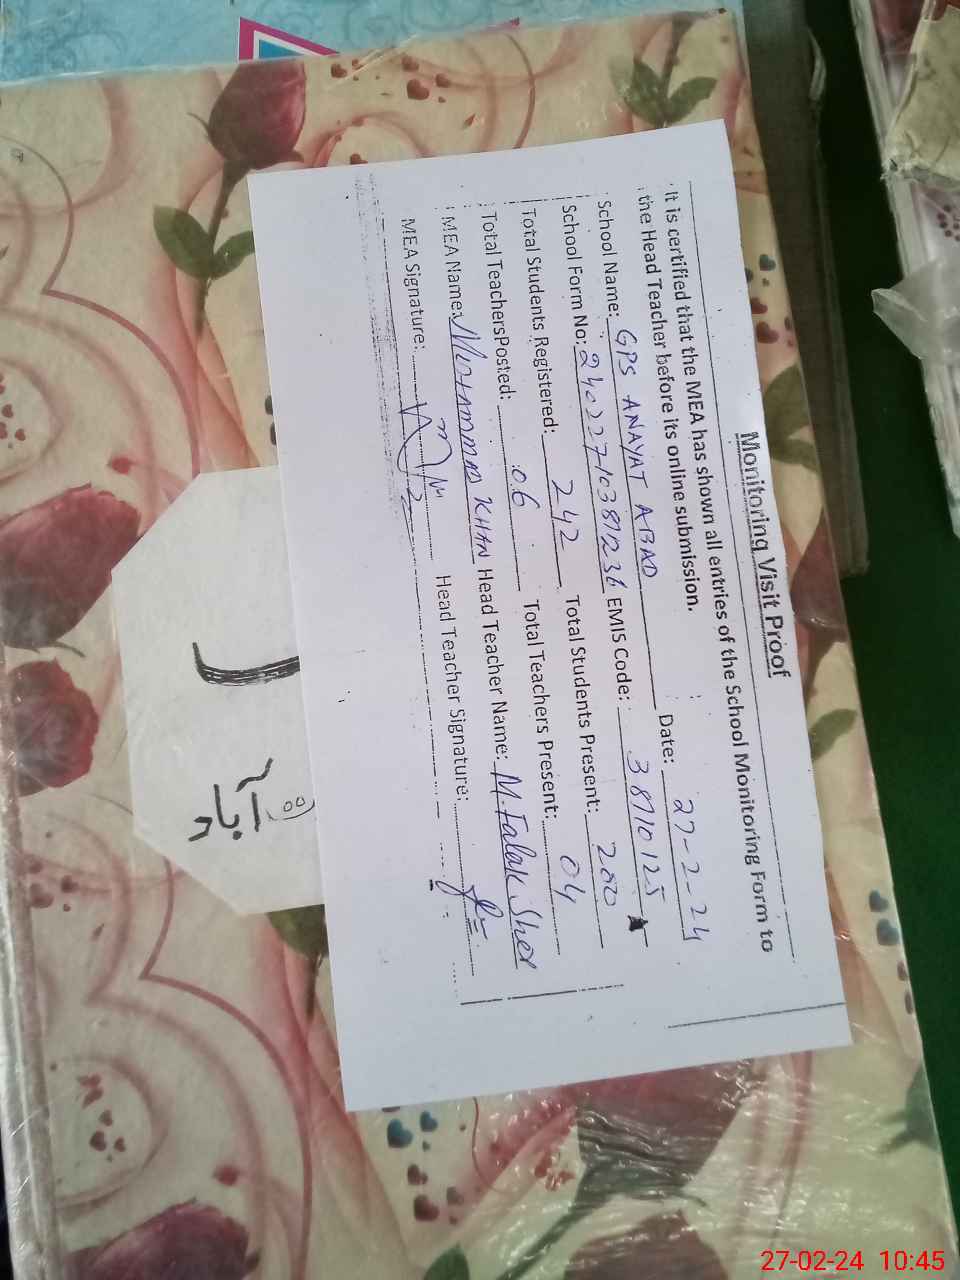 Monitoring Visit Proof
It is certified that the MEA has shown all entries of the School Monitoring Form to
the Head Teacher before its online submission.
School Name: GPS ANAYAT ABAD Date: 27-2-24
School Form No: EMIS Code: 38710125
Total Students Registered: 242 Total Students Present: 200
Total TeachersPosted: 06 Total Teachers Present: 04
MEA Name: Muhammad KHAN Head Teacher Name: M. Falak Sher
MEA Signature: Head Teacher Signature:
آباد
27-02-24 10:45